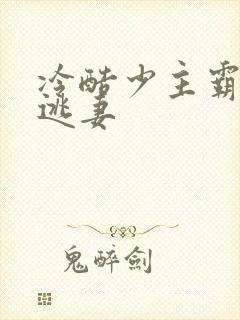 冷酷少主霸
逃妻
鬼醉劍